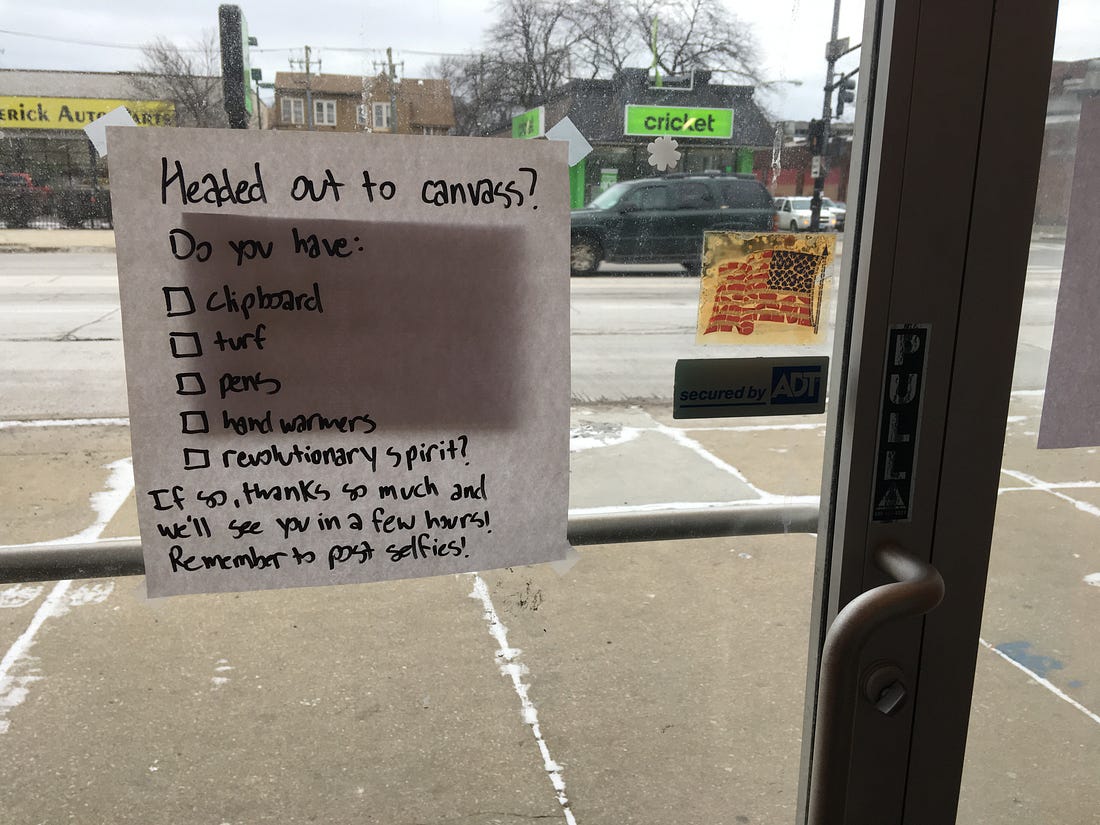 ERICK AUTO PARTS
cricket
Headed out to canvass?
Do you have:
clipboard
turf
pens
hand warmers
revolutionary spirit?
If so, thanks so much and
we'll see you in a few hours!
Remember to post selfies!
secured by ADT
PULL